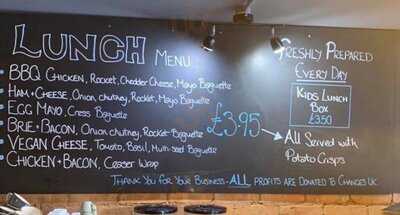 LUNCH MENU
BBQ CHICKEN, ROCKET, CHEDDAR CHEESE, MAYO BAGUETTE
HAM + CHEESE, ONION CHUTNEY, ROCKET, MAYO BAGUETTE
EGG MAYO, CRESS BAGUETTE
BRIE + BACON, ONION CHUTNEY, ROCKET BAGUETTE
VEGAN CHEESE, TOMATO, BASIL, MULTI-SEED BAGUETTE
CHICKEN + BACON, CEASER WRAP
£3.95
FRESHLY PREPARED
EVERY DAY
KIDS LUNCH
BOX
£3.50
ALL SERVED WITH
POTATO CRISPS
THANK YOU FOR YOUR BUSINESS - ALL PROFITS ARE DONATED TO CHANGES UK